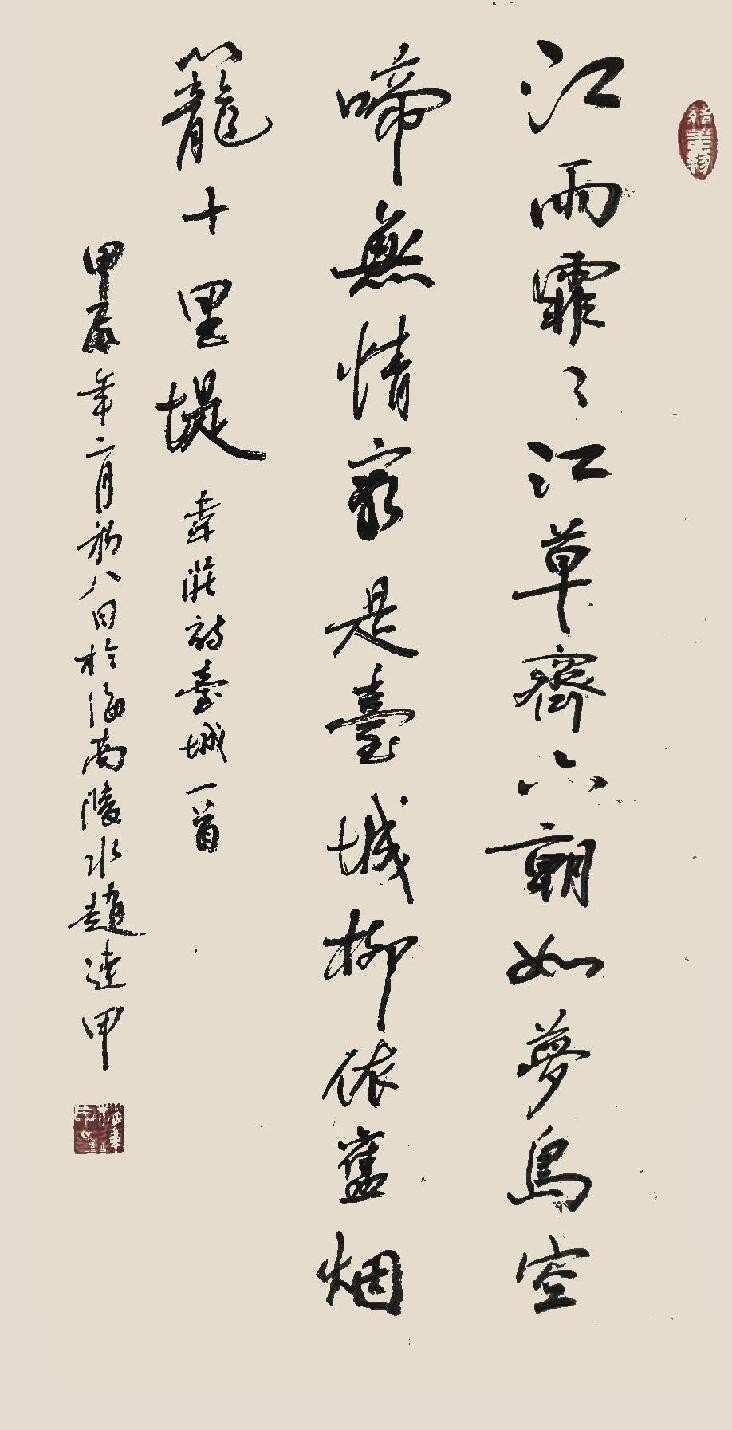 江雨霏〻江草齊六朝如夢鳥空
啼無情最是臺城柳依舊烟
籠十里堤
韋莊詩臺城一首
甲辰年二月初八日於海南陵水趙達甲